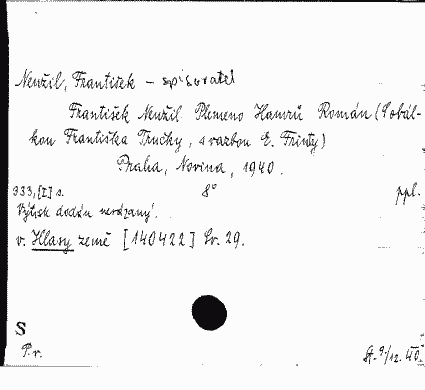 Neužil, František – spisovatel
František Neužil. Plemeno Hamrů Román (S obál-
kou Františka Tručky, s vazbou E. Frinty)
Praha, Novina, 1940.
333, [I] s. 8° ppl.
Výtisk dodán nevázaný.
v. Hlasy země [140422] Sv. 29.
S
P. r. St. 9/12. 40.